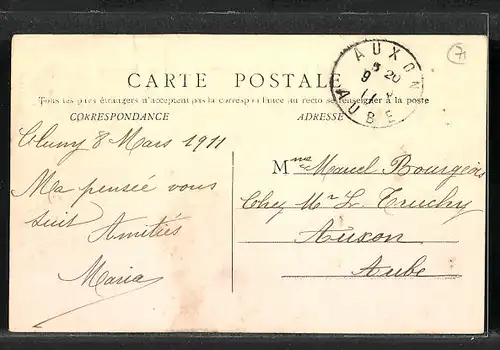 AUXON
5 20
9
11
AUBE
CARTE POSTALE
Tous les pays étrangers n'acceptent pas la correspondance au recto se renseigner à la poste
CORRESPONDANCE
ADRESSE
Cluny 8 Mars 1911
Ma pensée vous
suit Amitiés
Maria
Mme Marcel Bourgeois
Chez Mr L. Truchy
Auxon
Aube